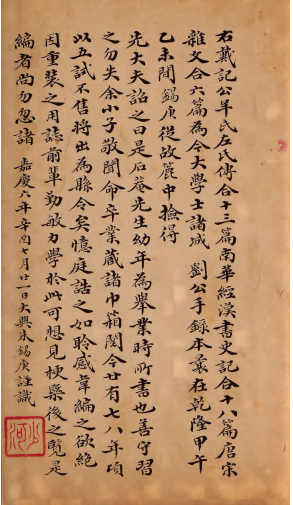 右戴記公羊氏左氏傳合十三篇南華經漢書史記合十八篇唐宋
雜文合六篇為今大學士諸城　劉公手錄本曩在乾隆甲午
乙未間錫庚從故簏中撿得
先大夫詔之曰是石菴先生幼年為舉業時所書也善守習
之勿失余小子敬聞命卒業藏諸巾箱閱今廿有七八年頃
以五試不售將出為縣令矣憶庭誥之如聆感韋編之欲絶
因重裝之用誌前輩勤敏力學於此可想見梗槩後之覽是
編者尚勿忽諸　嘉慶六年辛酉七月廿一日大興朱錫庚謹識
少河